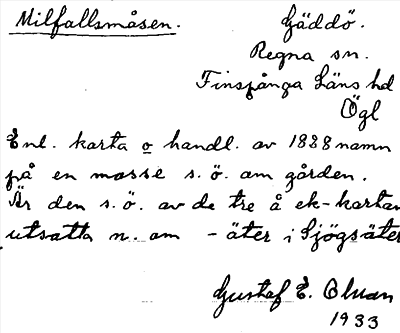 Milfallsmåsen. Gäddö.
Regna sn.
Finspånga Läns hd
Ögl
Enl. karta o handl. av 1828 namn
på en mosse s.ö. om gården.
Är den s.ö. av de tre å ek-kartan
utsatta n. om -äter i Sjögsäter
Gustaf E. Olman
1933